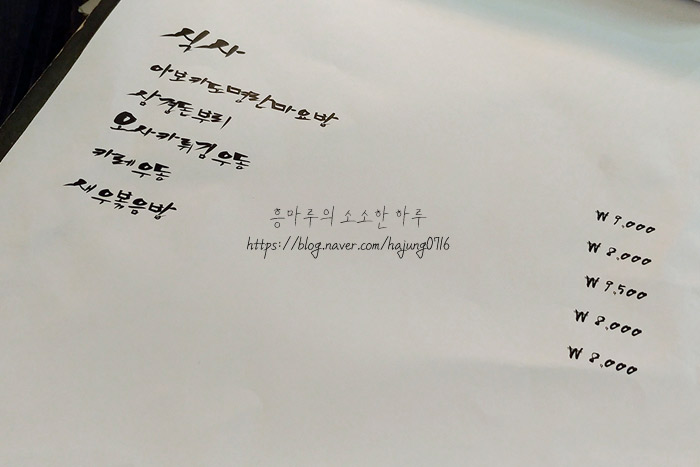 식사
아보카도명란마요밥 ₩ 9,000
삼겹돈부리 ₩ 8,000
오사카튀김우동 ₩ 9,500
카레우동 ₩ 8,000
새우볶음밥 ₩ 8,000
흥마루의 소소한 하루
https://blog.naver.com/hajung0716